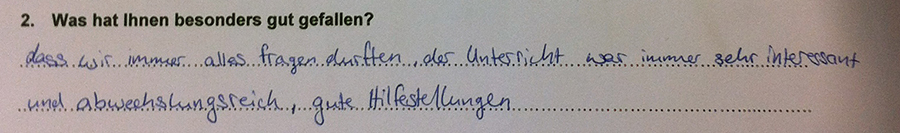 2. Was hat Ihnen besonders gut gefallen?
dass wir immer alles fragen durften, der Unterricht war immer sehr interessant
und abwechslungsreich, gute Hilfestellungen